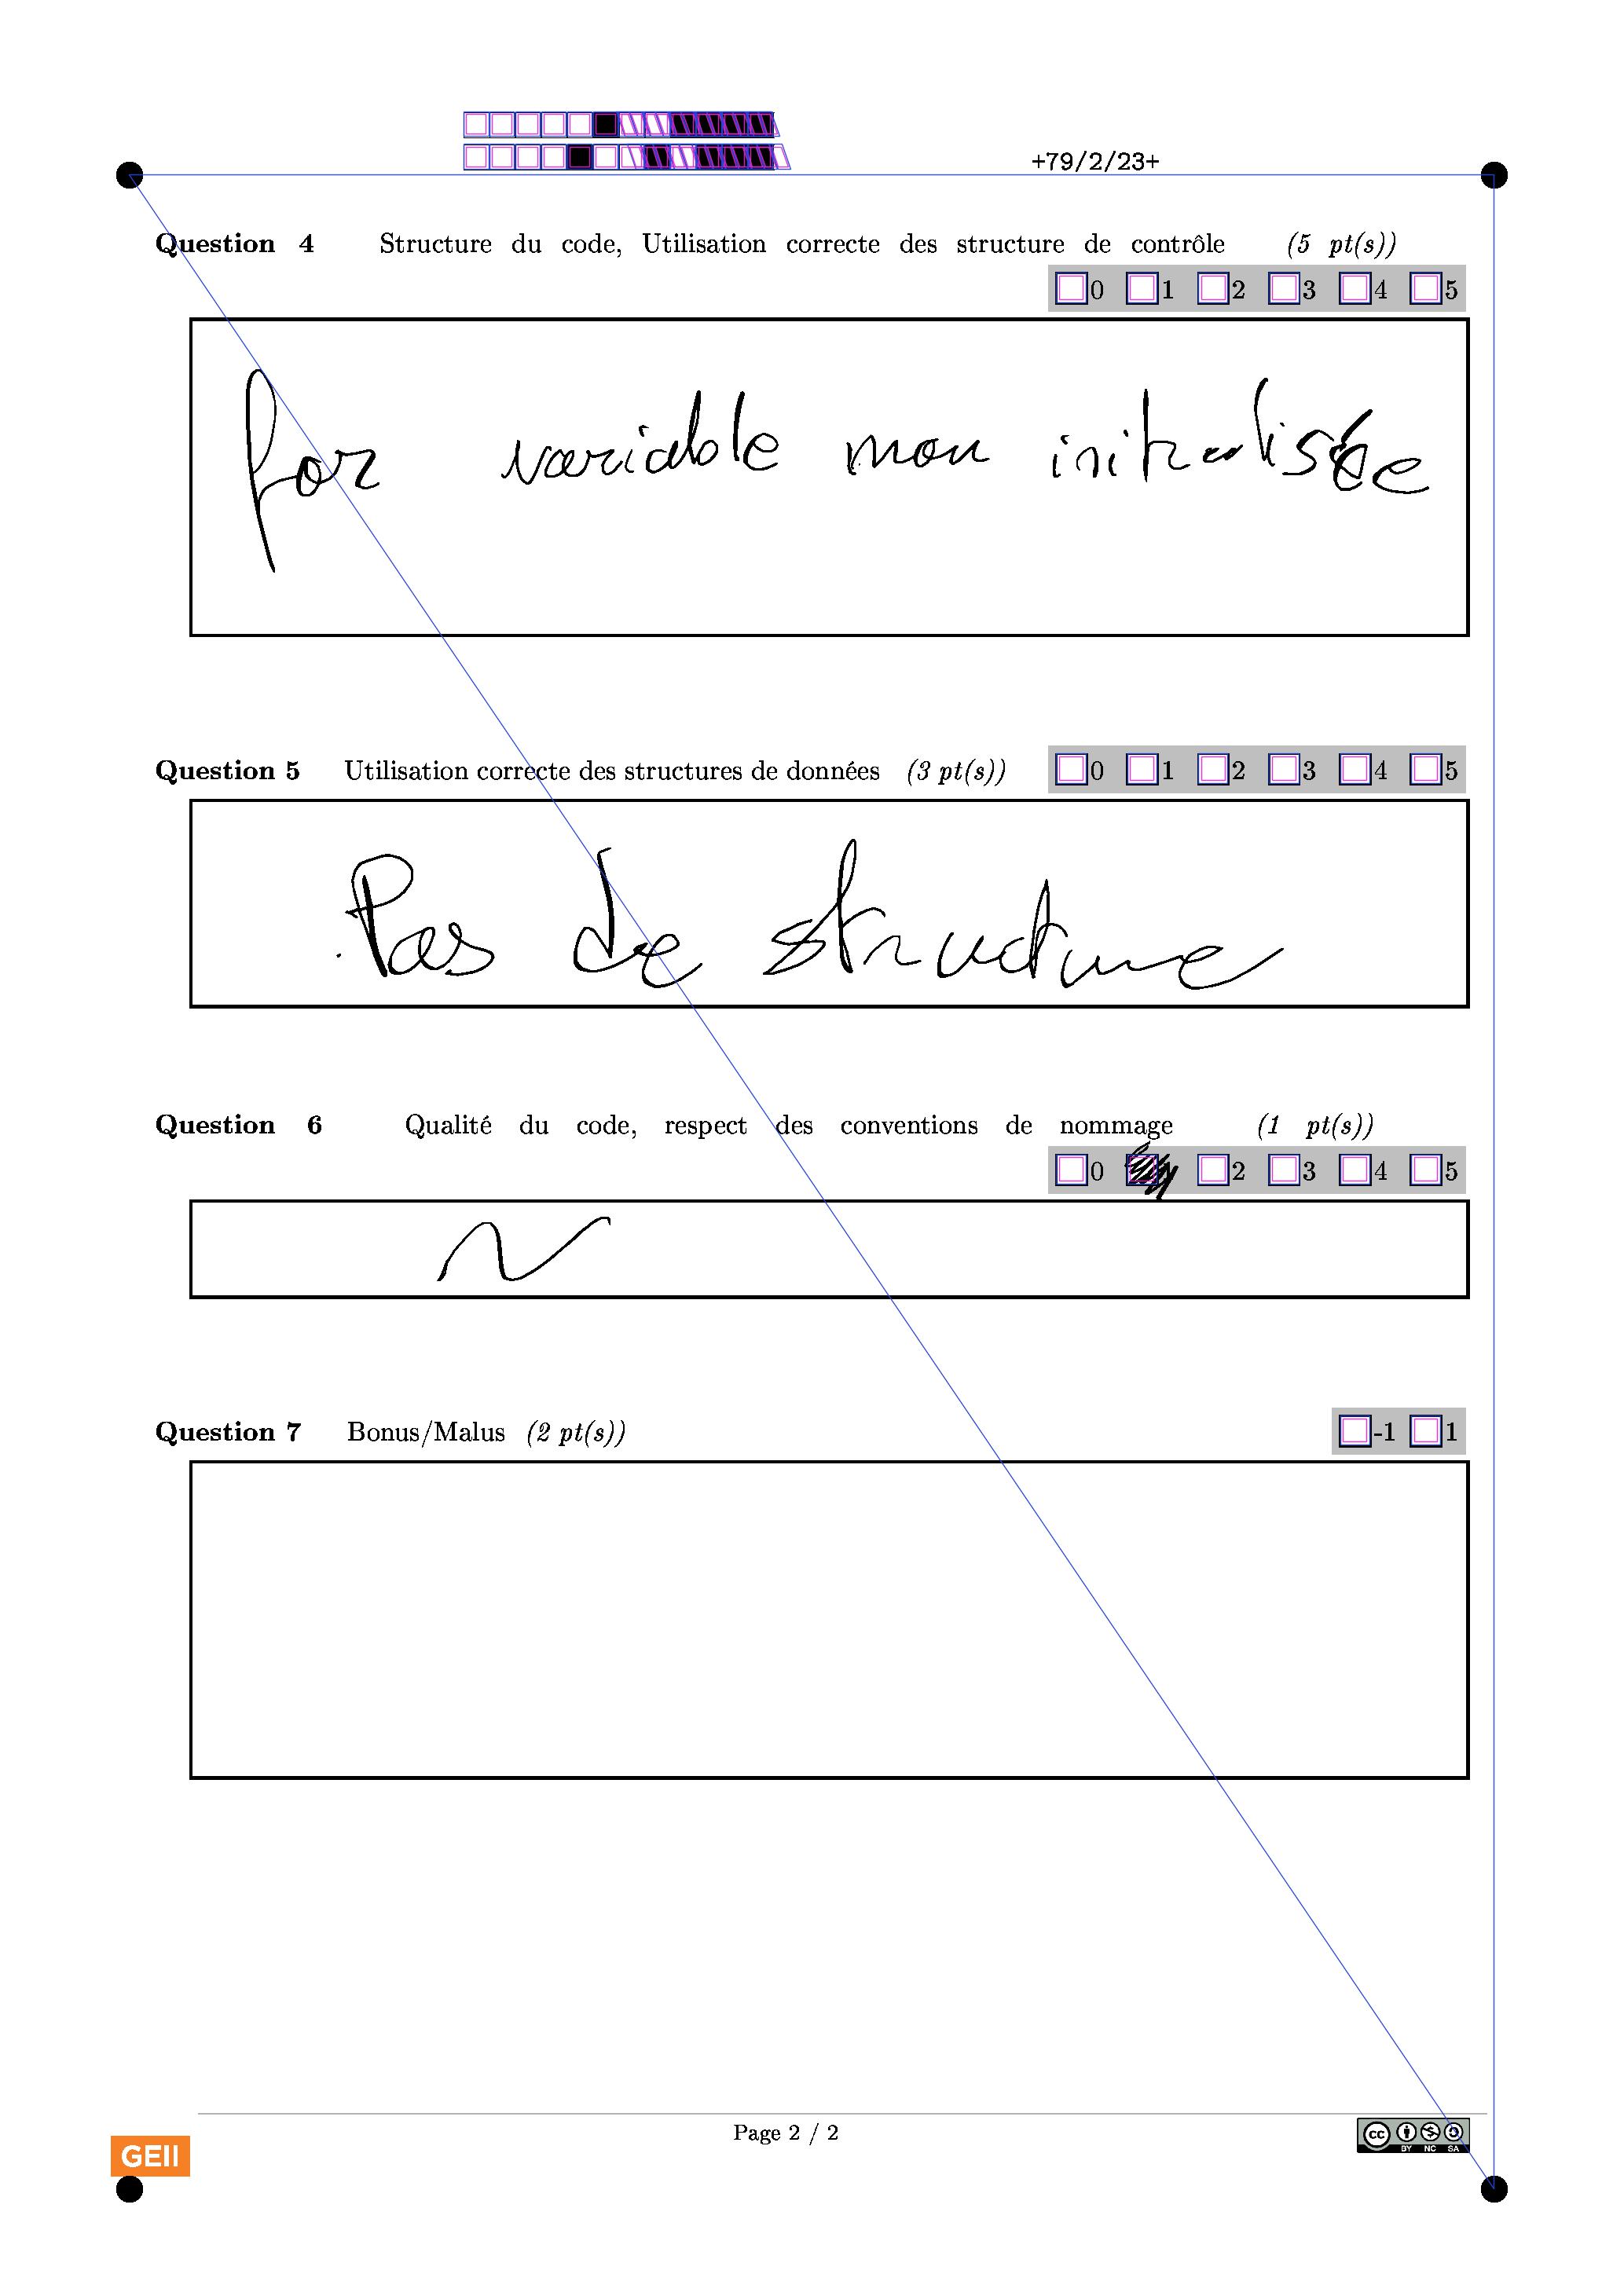 +79/2/23+
Question 4 Structure du code, Utilisation correcte des structure de contrôle (5 pt(s))
0 1 2 3 4 5
for variable non initialisée
Question 5 Utilisation correcte des structures de données (3 pt(s)) 0 1 2 3 4 5
Pas de structure
Question 6 Qualité du code, respect des conventions de nommage (1 pt(s))
0 2 3 4 5
Question 7 Bonus/Malus (2 pt(s)) -1 1
Page 2 / 2
GEII
cc BY NC SA